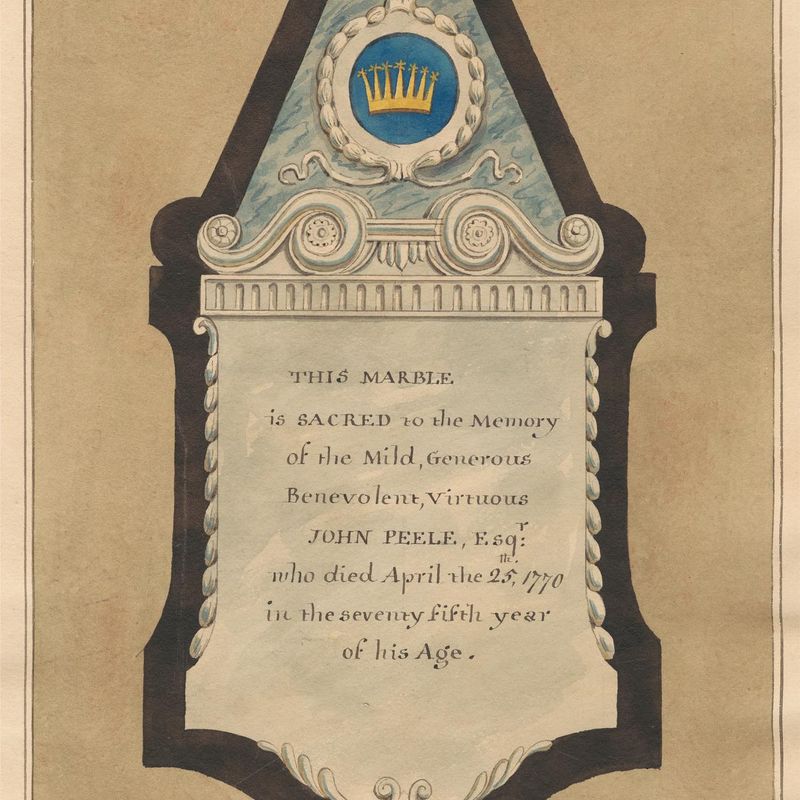 THIS MARBLE
is SACRED to the Memory
of the Mild, Generous
Benevolent, Virtuous
JOHN PEELE, Esqr:
who died April the 25th, 1770
in the seventy fifth year
of his Age.